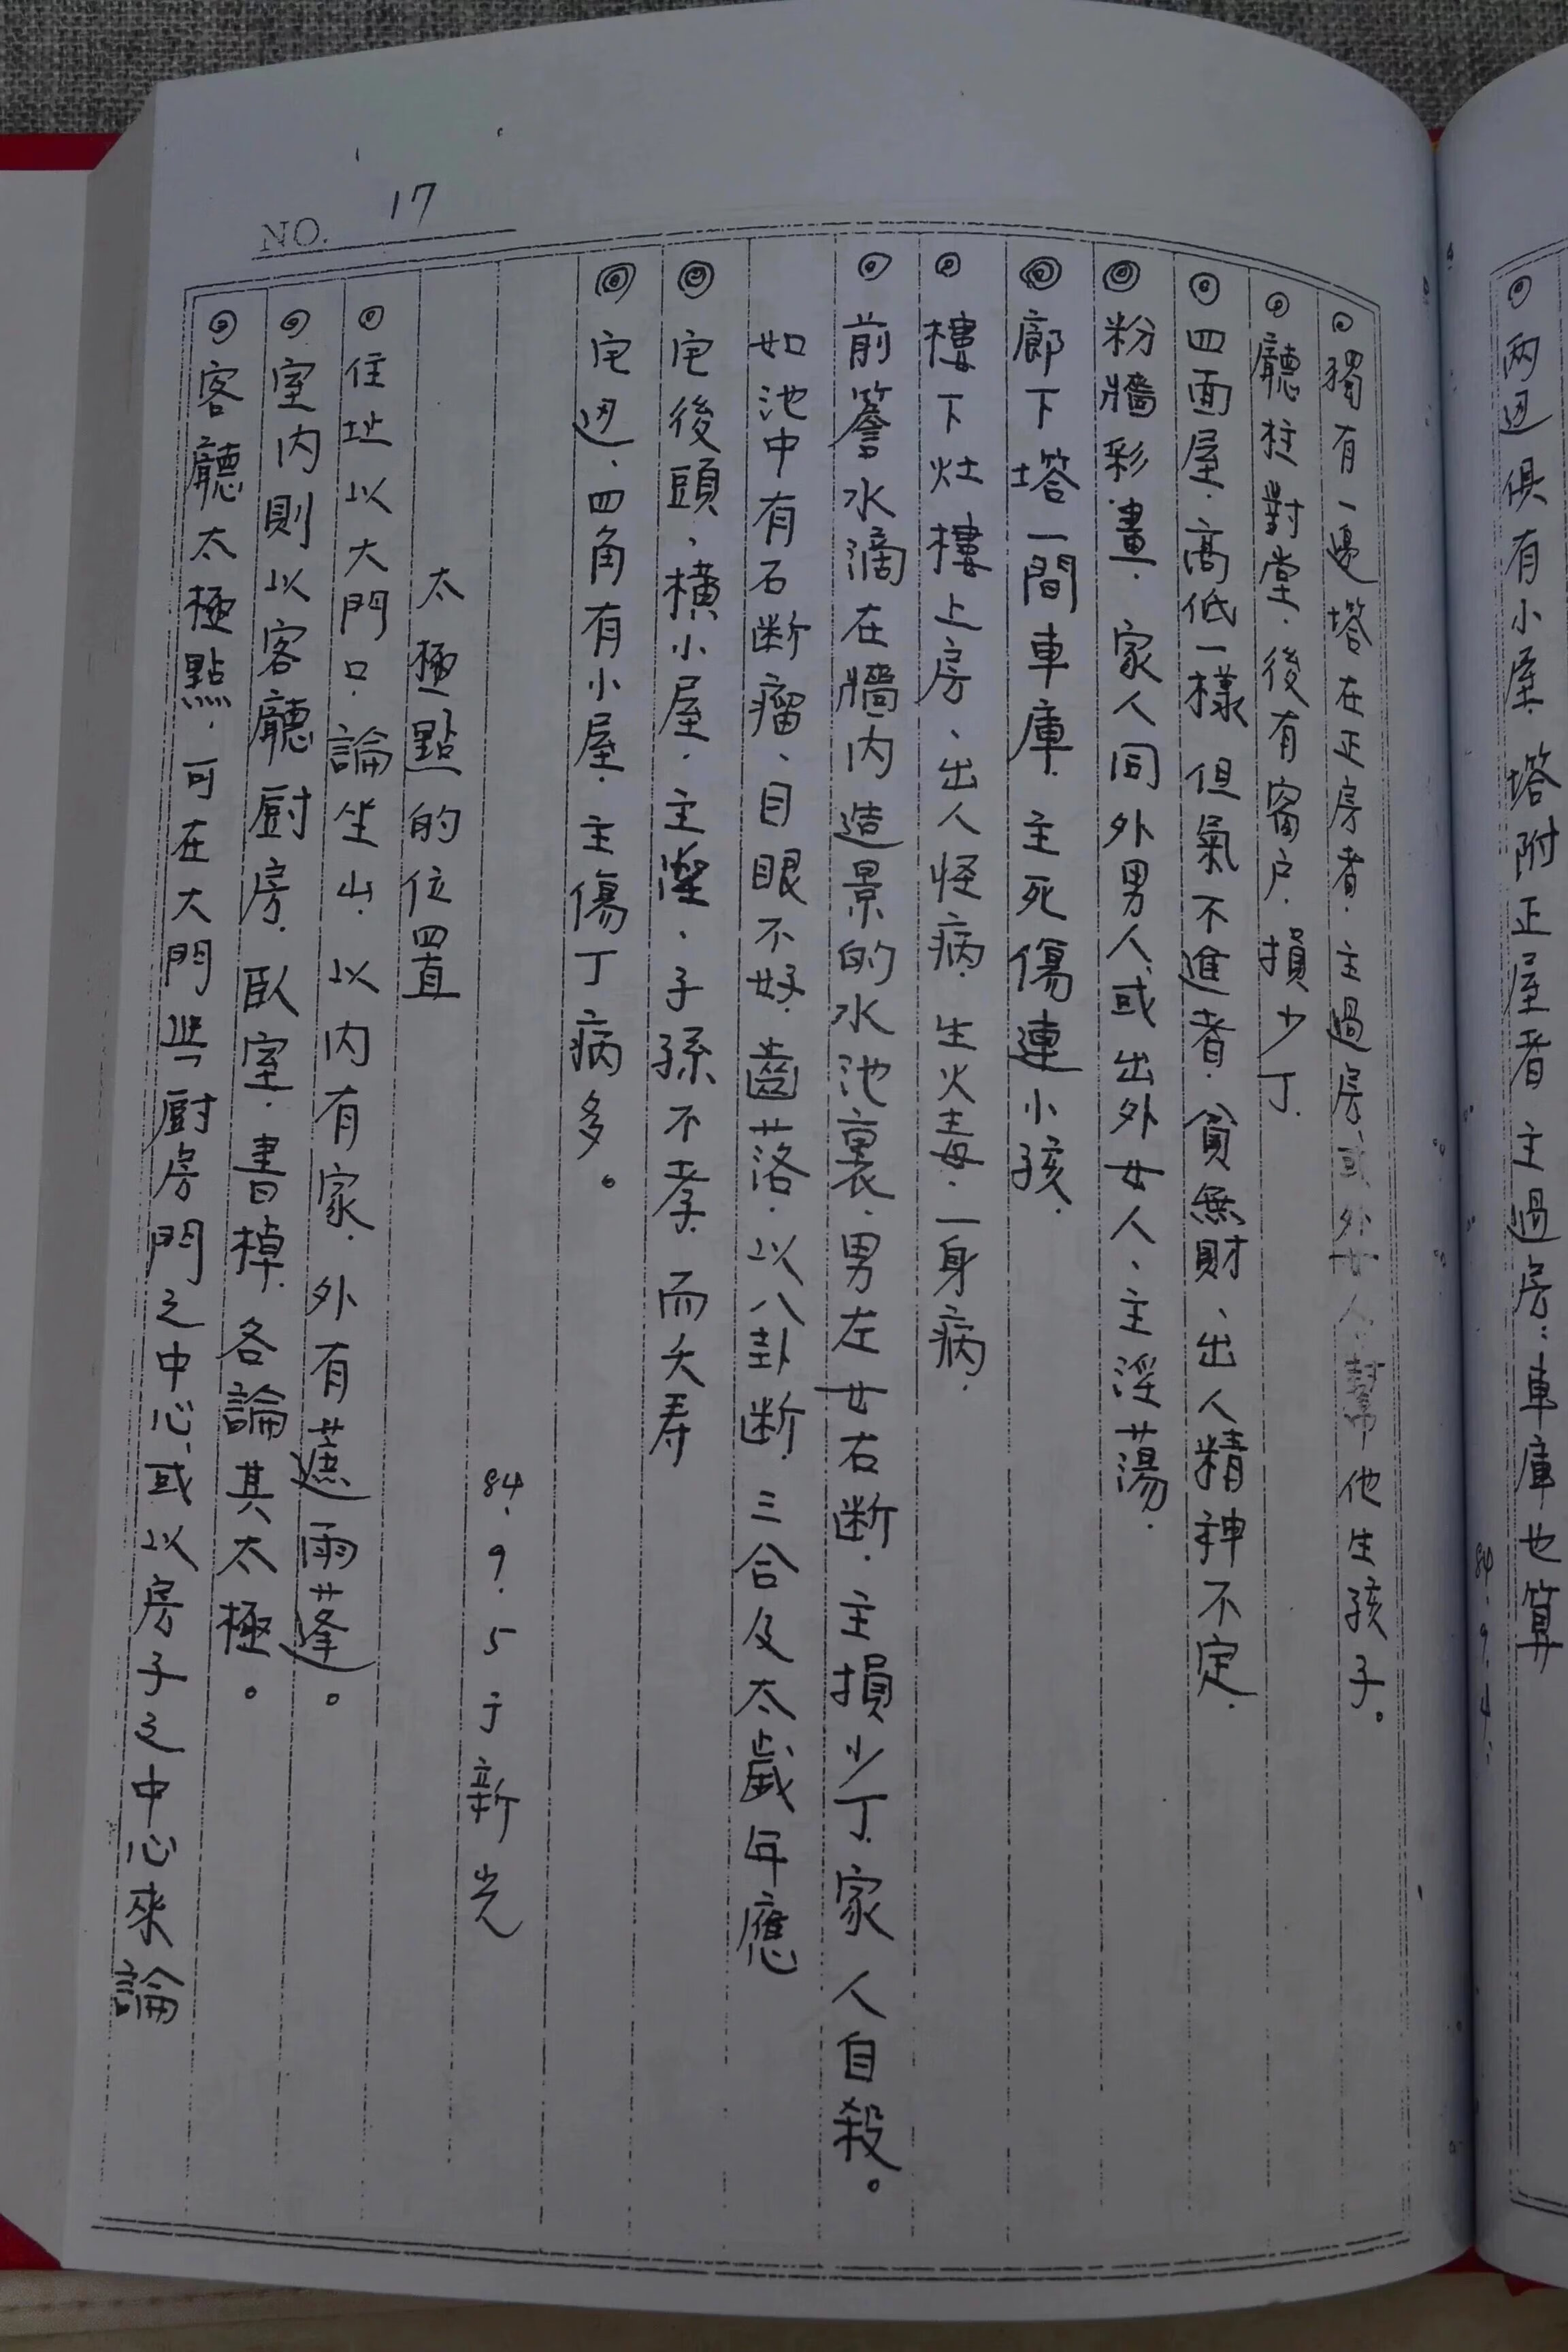 两边俱有小屋、塔附正屋者主過房：車庫也算
84.9.4.
NO. 17
◎獨有一邊塔在正房者、主過房、或外女人幫他生孩子。
◎廳柱對堂、後有窗户、損少丁、
◎四面屋、高低一樣但氣不進者、貧無財、出人精神不定、
◎粉牆彩畫、家人同外男人、或出外女人、主淫蕩、
◎廊下塔一間車庫、主死傷連小孩、
◎樓下灶樓上房、出人怪病、生火毒、一身病、
◎前簷水滴在牆内造景的水池裏、男左女右断、主損少丁、家人自殺。
如池中有石断瘤、目眼不好、齒落、以八卦断、三合及太歲年應
◎宅後頭、橫小屋、主墮、子孫不孝、而夭寿
◎宅边、四角有小屋、主傷丁病多。
84.9.5于新光
太極點的位置
◎住址以大門口、論坐山、以内有家、外有遮雨蓬。
◎室内則以客廳廚房、臥室、書棹、各論其太極。
◎客廳太極點、可在大門與廚房門之中心、或以房子之中心來論